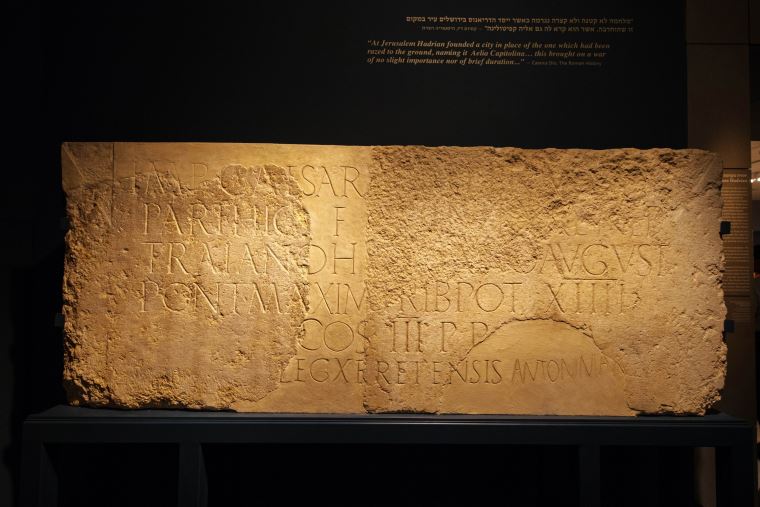 "מלחמה לא קטנה ולא קצרה נגרמה כאשר ייסד הדריאנוס בירושלים עיר במקום
זו שנחרבה, אשר הוא קרא לה גם אליה קפיטולינה"
"At Jerusalem Hadrian founded a city in place of the one which had been
razed to the ground, naming it Aelia Capitolina... this brought on a war
of no slight importance nor of brief duration..." — Cassius Dio, The Roman History
IMP CAESAR
PARTHIC F
TRAIAN H AVGVST
PONT MAXIM TRIB POT XIIII
COS III P P
LEG X FRETENSIS ANTONINIAN